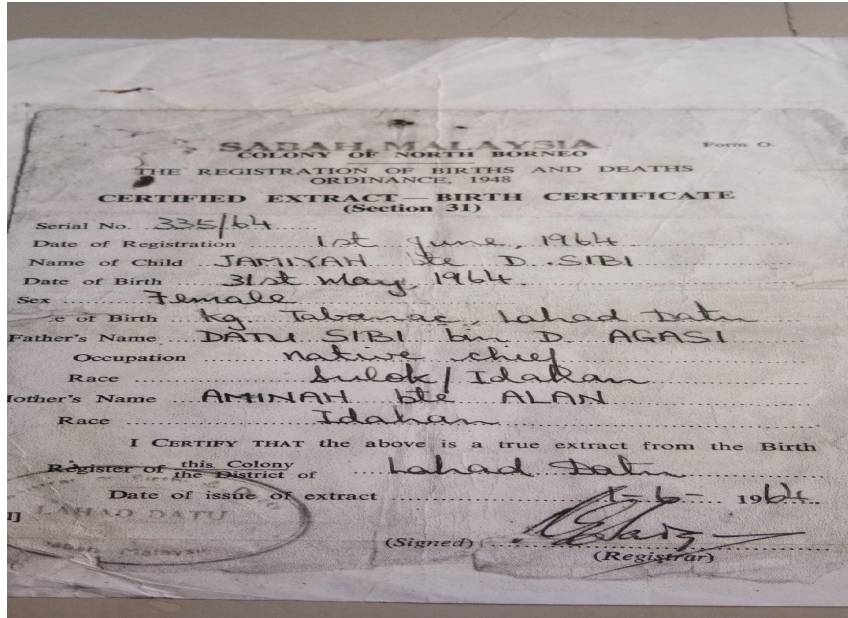 SABAH, MALAYSIA
Form O.
COLONY OF NORTH BORNEO
THE REGISTRATION OF BIRTHS AND DEATHS
ORDINANCE, 1948
CERTIFIED EXTRACT—BIRTH CERTIFICATE
(Section 31)
Serial No. 335/64
Date of Registration 1st June, 1964
Name of Child JAMIYAH bte D. SIBI
Date of Birth 31st May, 1964.
Sex Female
e of Birth Kg. Tabanac, Lahad Datu
Father's Name DATU SIBI bin D. AGASI
Occupation native chief
Race Sulok/Idahan
Mother's Name AMINAH bte ALAN
Race Idahan
I CERTIFY THAT the above is a true extract from the Birth
Register of this Colony
the District of Lahad Datu
Date of issue of extract 1-6-1964
LAHAD DATU
(Signed)
(Registrar)